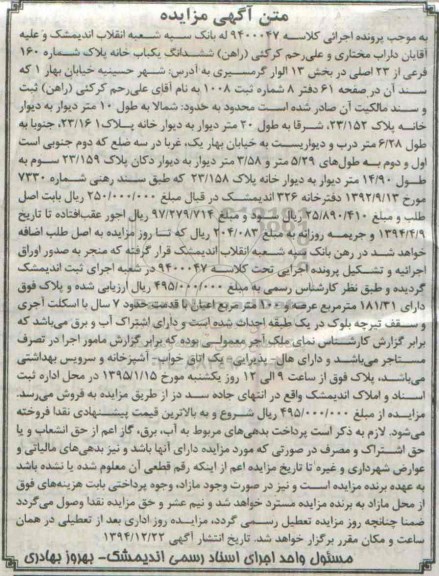 متن آگهی مزایده
به موجب پرونده اجرائی کلاسه ۹۴۰۰۰۴۷ له بانک سپه شعبه انقلاب اندیمشک و علیه
آقایان داراب مختاری و علی‌رحم کرکئی (راهن) ششدانگ یکباب خانه پلاک شماره ۱۶۰
فرعی از ۲۳ اصلی در بخش ۱۳ الوار گرمسیری به آدرس: شهر حسینیه خیابان بهار ۱ که
سند آن در صفحه ۶۱ دفتر ۸ شماره ثبت ۱۰۰۸ به نام آقای علی‌رحم کرکئی (راهن) ثبت
و سند مالکیت آن صادر شده است محدود به حدود: شمالا به طول ۱۰ متر دیوار به دیوار
خانه پلاک ۲۳/۱۵۲، شرقا به طول ۲۰ متر دیوار به دیوار خانه پلاک ۲۳/۱۶۱، جنوبا به
طول ۶/۲۸ متر درب و دیواریست به خیابان بهار یک، غربا در سه ضلع که دوم جنوبی است
اول و دوم به طول‌های ۵/۲۹ متر و ۳/۵۸ متر دیوار به دیوار دکان پلاک ۲۳/۱۵۹ سوم به
طول ۱۴/۹۰ متر دیوار به دیوار خانه پلاک ۲۳/۱۵۸ که طبق سند رهنی شماره ۷۳۳۰
مورخ ۱۳۹۲/۹/۱۳ دفترخانه ۳۲۶ اندیمشک در قبال مبلغ ۲۵۰/۰۰۰/۰۰۰ ریال بابت اصل
طلب و مبلغ ۲۵/۸۹۰/۴۱۰ ریال سود و مبلغ ۹۷/۲۷۹/۷۱۴ ریال اجور عقب‌افتاده تا تاریخ
۱۳۹۴/۴/۹ و جریمه روزانه به مبلغ ۲۰۴/۰۸۳ ریال که تا روز مزایده به اصل طلب اضافه
خواهد شد در رهن بانک سپه شعبه انقلاب اندیمشک قرار گرفته که منجر به صدور اوراق
اجرائیه و تشکیل پرونده اجرایی تحت کلاسه ۹۴۰۰۰۴۷ در شعبه اجرای ثبت اندیمشک
گردیده و طبق نظر کارشناس رسمی به مبلغ ۴۹۵/۰۰۰/۰۰۰ ریال ارزیابی شده و پلاک فوق
دارای ۱۸۱/۳۱ مترمربع عرصه و ۱۰۰ متر مربع اعیان با قدمت حدود ۷ سال با اسکلت آجری
و سقف تیرچه بلوک در یک طبقه احداث شده است و دارای اشتراک آب و برق می‌باشد که
برابر گزارش کارشناس نمای ملک آجر معمولی بوده که برابر گزارش مامور اجرا در تصرف
مستاجر می‌باشد و دارای هال- پذیرایی- یک اتاق خواب- آشپزخانه و سرویس بهداشتی
می‌باشد، پلاک فوق از ساعت ۹ الی ۱۲ روز یکشنبه مورخ ۱۳۹۵/۱/۱۵ در محل اداره ثبت
اسناد و املاک اندیمشک واقع در انتهای جاده سد دز از طریق مزایده به فروش می‌رسد.
مزایده از مبلغ ۴۹۵/۰۰۰/۰۰۰ ریال شروع و به بالاترین قیمت پیشنهادی نقدا فروخته
می‌شود. لازم به ذکر است پرداخت بدهی‌های مربوط به آب، برق، گاز اعم از حق انشعاب و یا
حق اشتراک و مصرف در صورتی که مورد مزایده دارای آنها باشد و نیز بدهی‌های مالیاتی و
عوارض شهرداری و غیره تا تاریخ مزایده اعم از اینکه رقم قطعی آن معلوم شده یا نشده باشد
به عهده برنده مزایده است و نیز در صورت وجود مازاد، وجوه پرداختی بابت هزینه‌های فوق
از محل مازاد به برنده مزایده مسترد خواهد شد و نیم عشر و حق مزایده نقدا وصول می‌گردد
ضمنا چنانچه روز مزایده تعطیل رسمی گردد، مزایده روز اداری بعد از تعطیلی در همان
ساعت و مکان مقرر برگزار خواهد شد. تاریخ انتشار آگهی ۱۳۹۴/۱۲/۲۲
مسئول واحد اجرای اسناد رسمی اندیمشک- بهروز بهادری